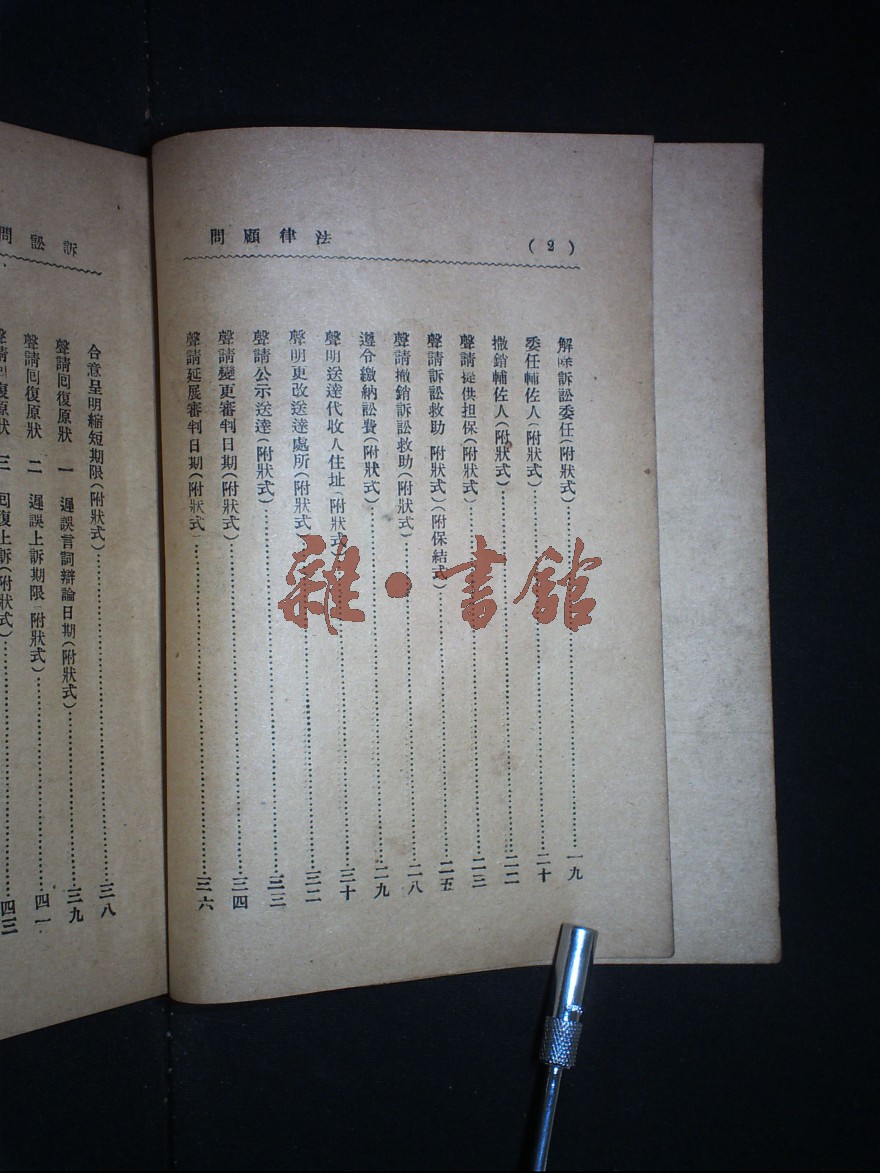 (2)
法律顧問
解除訴訟委任(附狀式)……一九
委任輔佐人(附狀式)……二十
撤銷輔佐人(附狀式)……二二
聲請提供担保(附狀式)……二三
聲請訴訟救助 附狀式)(附保結式)……二五
聲請撤銷訴訟救助(附狀式)……二八
遵令繳納訟費(附狀式)……二九
聲明送達代收人住址(附狀式)……三十
聲明更改送達處所(附狀式)……三二
聲請公示送達(附狀式)……三三
聲請變更審判日期(附狀式)……三四
聲請延展審判日期(附狀式)……三六
訴訟問
合意呈明縮短期限(附狀式)……三八
聲請回復原狀 一 遲誤言詞辯論日期(附狀式)……三九
聲請回復原狀 二 遲誤上訴期限(附狀式)……四一
聲請回復原狀 三 回復上訴(附狀式)……四三
雜·書館